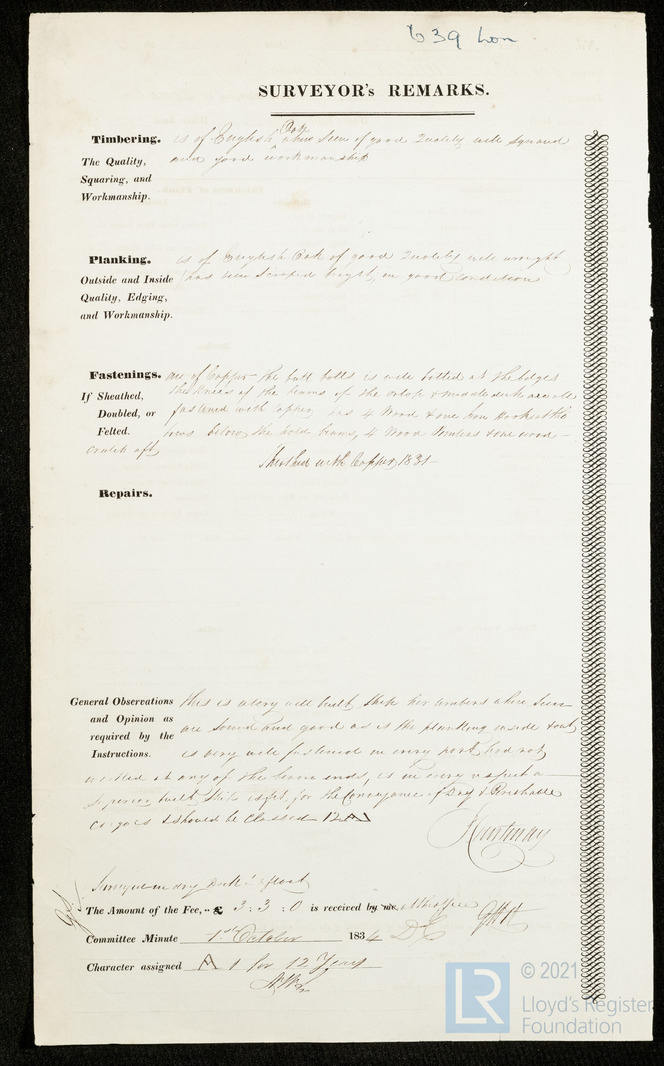 639 Lon
SURVEYOR's REMARKS.
Timbering. is of English Oak where seen of good Quality well squared
The Quality, and good workmanship
Squaring, and
Workmanship.
Planking. is of English Oak of good Quality well wrought
Outside and Inside has been scraped bright, in good condition
Quality, Edging,
and Workmanship.
Fastenings. are of Copper the butt bolts is well bolted at the bilges
If Sheathed, the knees of the beams of the orlop & middle deck are all
Doubled, or fastened with Copper, has 4 Wood & one Iron Hooks at the
Felted. bows below the hold beams, 4 Wood & one wood
crutch aft
Sheathed with Copper 1831
Repairs.
General Observations this is a very well built Ship her timbers where seen
and Opinion as are sound and good as is the planking inside & out
required by the
Instructions. is very well fastened in every part, had not
worked at any of the beam ends, is in every respect a
Superior built Ship is fit for the Conveyance of Dry & Perishable
Cargoes & should be Classed 12 A1
Courtenay
Surveyed in dry Dock & afloat
The Amount of the Fee, .. £ 3 : 3 : 0 is received by me,
Committee Minute 1st October 1834
Character assigned A 1 for 12 Years
© 2021
LR Lloyd's Register
Foundation